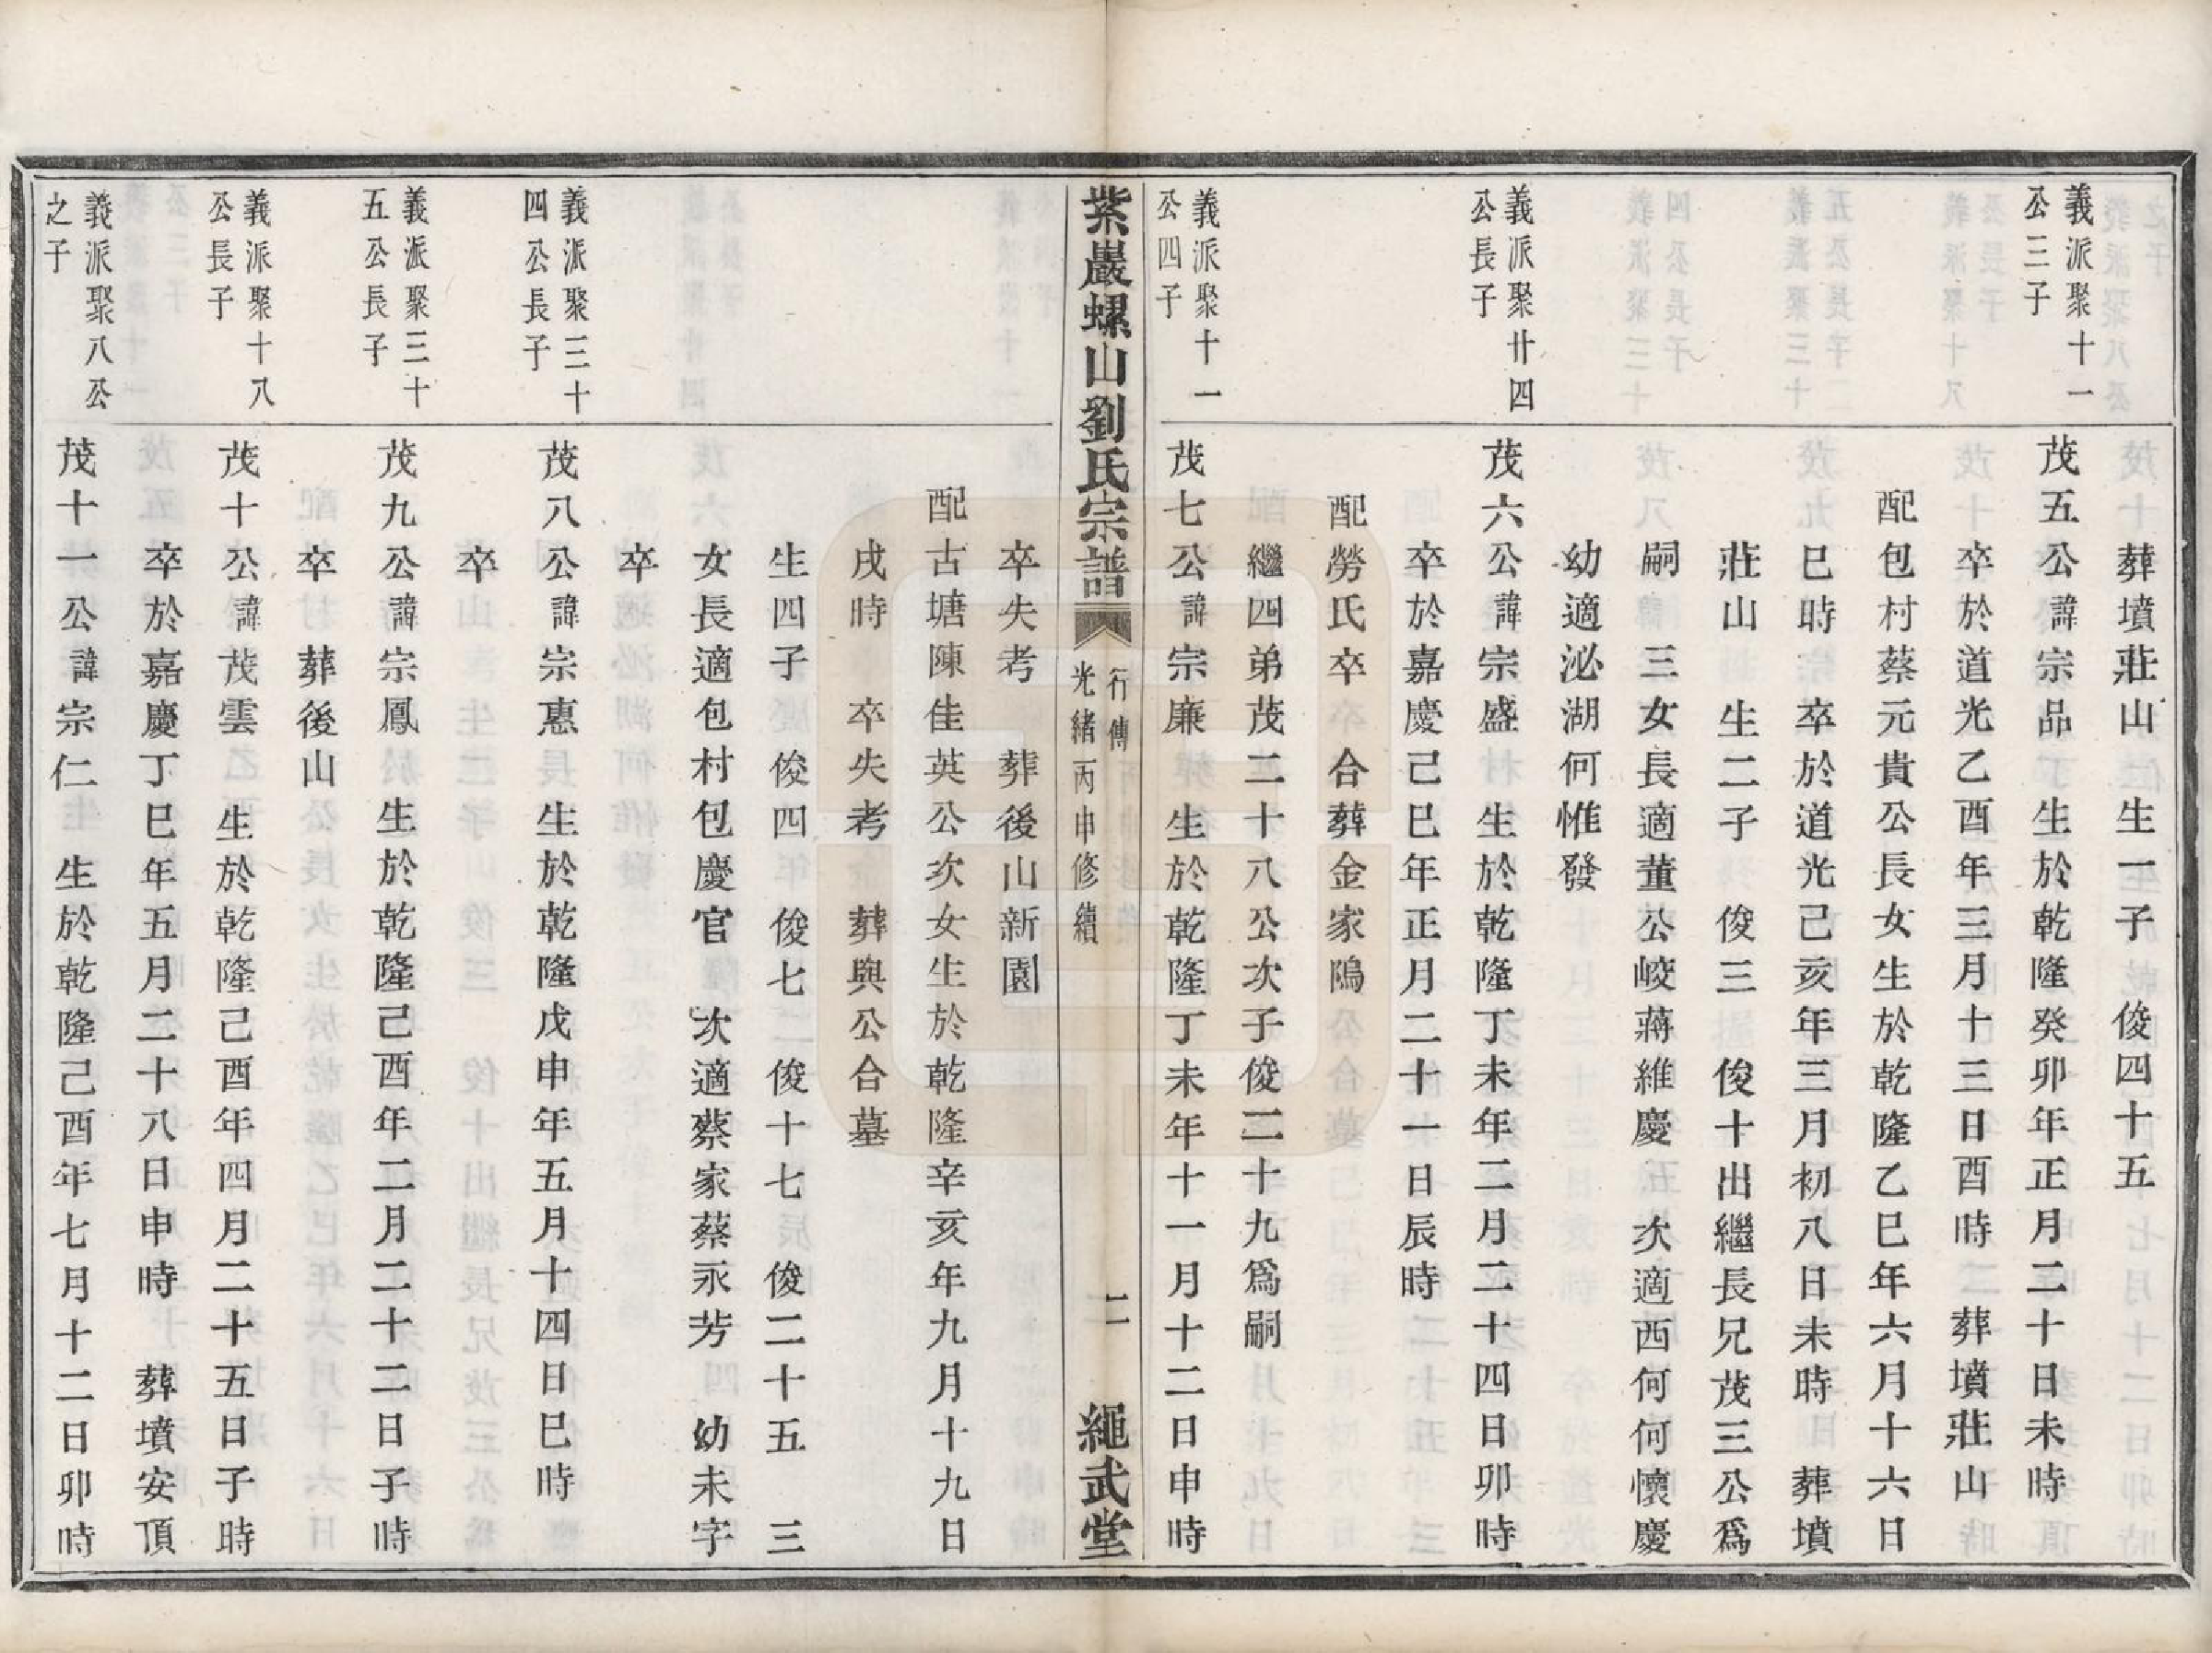 葬墳莊山　生一子　俊四十五
義派聚十一
公三子
茂五公諱宗品　生於乾隆癸卯年正月二十日未時
卒於道光乙酉年三月十三日酉時　葬墳莊山
配包村蔡元貴公長女生於乾隆乙巳年六月十六日
巳時　卒於道光己亥年三月初八日未時　葬墳
莊山　生二子　俊三　俊十出繼長兄茂三公爲
嗣　三女長適董公崚蔣維慶　次適西何何懷慶
幼適泌湖何惟發
義派聚廿四
公長子
茂六公諱宗盛　生於乾隆丁未年二月二十四日卯時
卒於嘉慶己巳年正月二十一日辰時
配勞氏卒　合葬金家隝
繼四弟茂二十八公次子俊二十九爲嗣
義派聚十一
公四子
茂七公諱宗廉　生於乾隆丁未年十一月十二日申時
紫巖螺山劉氏宗譜
行傳
光緒丙申修續
二
繩武堂
卒失考　葬後山新園
配古塘陳佳英公次女生於乾隆辛亥年九月十九日
戌時　卒失考　葬與公合墓
生四子　俊四　俊七　俊十七　俊二十五　三
女長適包村包慶官　次適蔡家蔡永芳　幼未字
卒
義派聚三十
四公長子
茂八公諱宗惠　生於乾隆戊申年五月十四日巳時
卒
義派聚三十
五公長子
茂九公諱宗鳳　生於乾隆己酉年二月二十二日子時
卒　葬後山
義派聚十八
公長子
茂十公諱茂雲　生於乾隆己酉年四月二十五日子時
卒於嘉慶丁巳年五月二十八日申時　葬墳安頂
義派聚八公
之子
茂十一公諱宗仁　生於乾隆己酉年七月十二日卯時